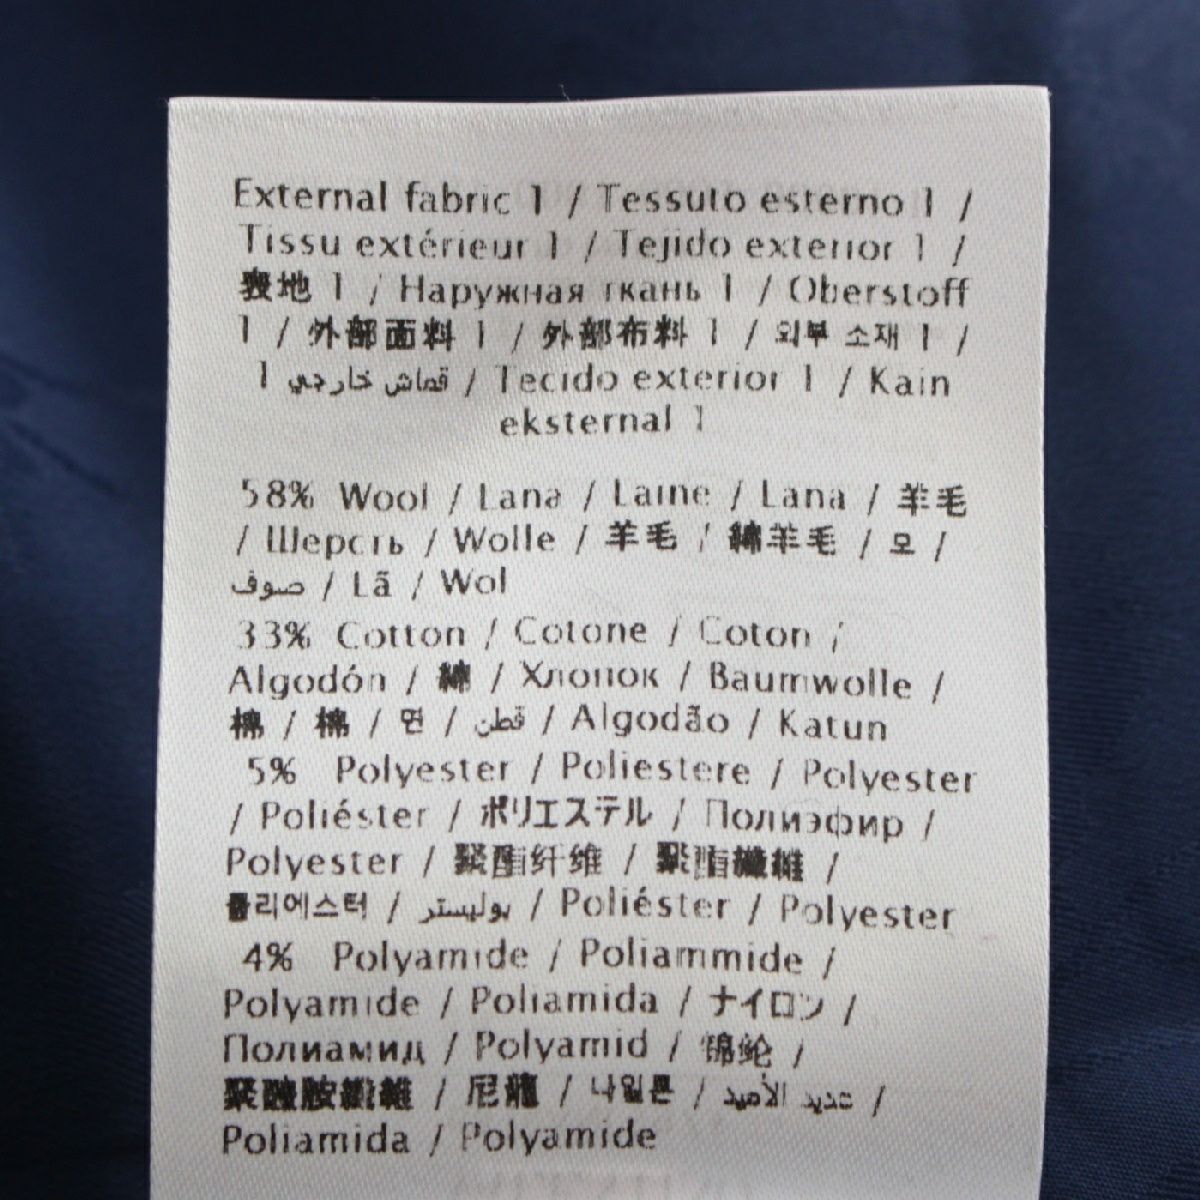 External fabric 1 / Tessuto esterno 1 /
Tissu extérieur 1 / Tejido exterior 1 /
表地 1 / Наружная ткань 1 / Oberstoff
1 / 外部面料 1 / 外部布料 1 / 외부 소재 1 /
1 قماش خارجي / Tecido exterior 1 / Kain
eksternal 1
58% Wool / Lana / Laine / Lana / 羊毛
/ Шерсть / Wolle / 羊毛 / 綿羊毛 / 모 /
صوف / Lã / Wol
33% Cotton / Cotone / Coton /
Algodón / 綿 / Хлопок / Baumwolle /
棉 / 棉 / 면 / قطن / Algodão / Katun
5% Polyester / Poliestere / Polyester
/ Poliéster / ポリエステル / Полиэфир /
Polyester / 聚酯纤维 / 聚酯纖維 /
폴리에스터 / بوليستر / Poliéster / Polyester
4% Polyamide / Poliammide /
Polyamide / Poliamida / ナイロン /
Полиамид / Polyamid / 锦纶 /
聚醯胺纖維 / 尼龍 / 나일론 / عديد الأميد /
Poliamida / Polyamide